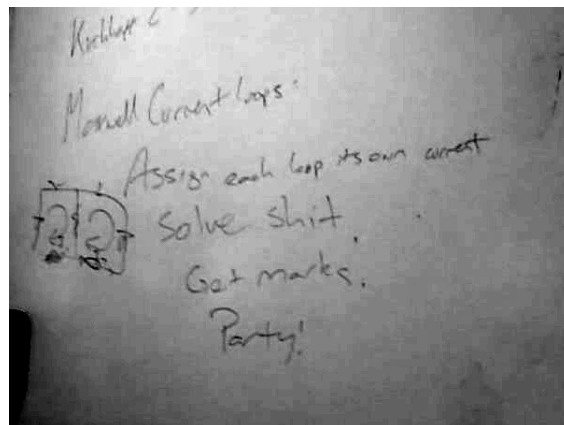 Kirchhoff
Maxwell Current loops:
Assign each loop its own current
Solve shit.
Get marks.
Party!